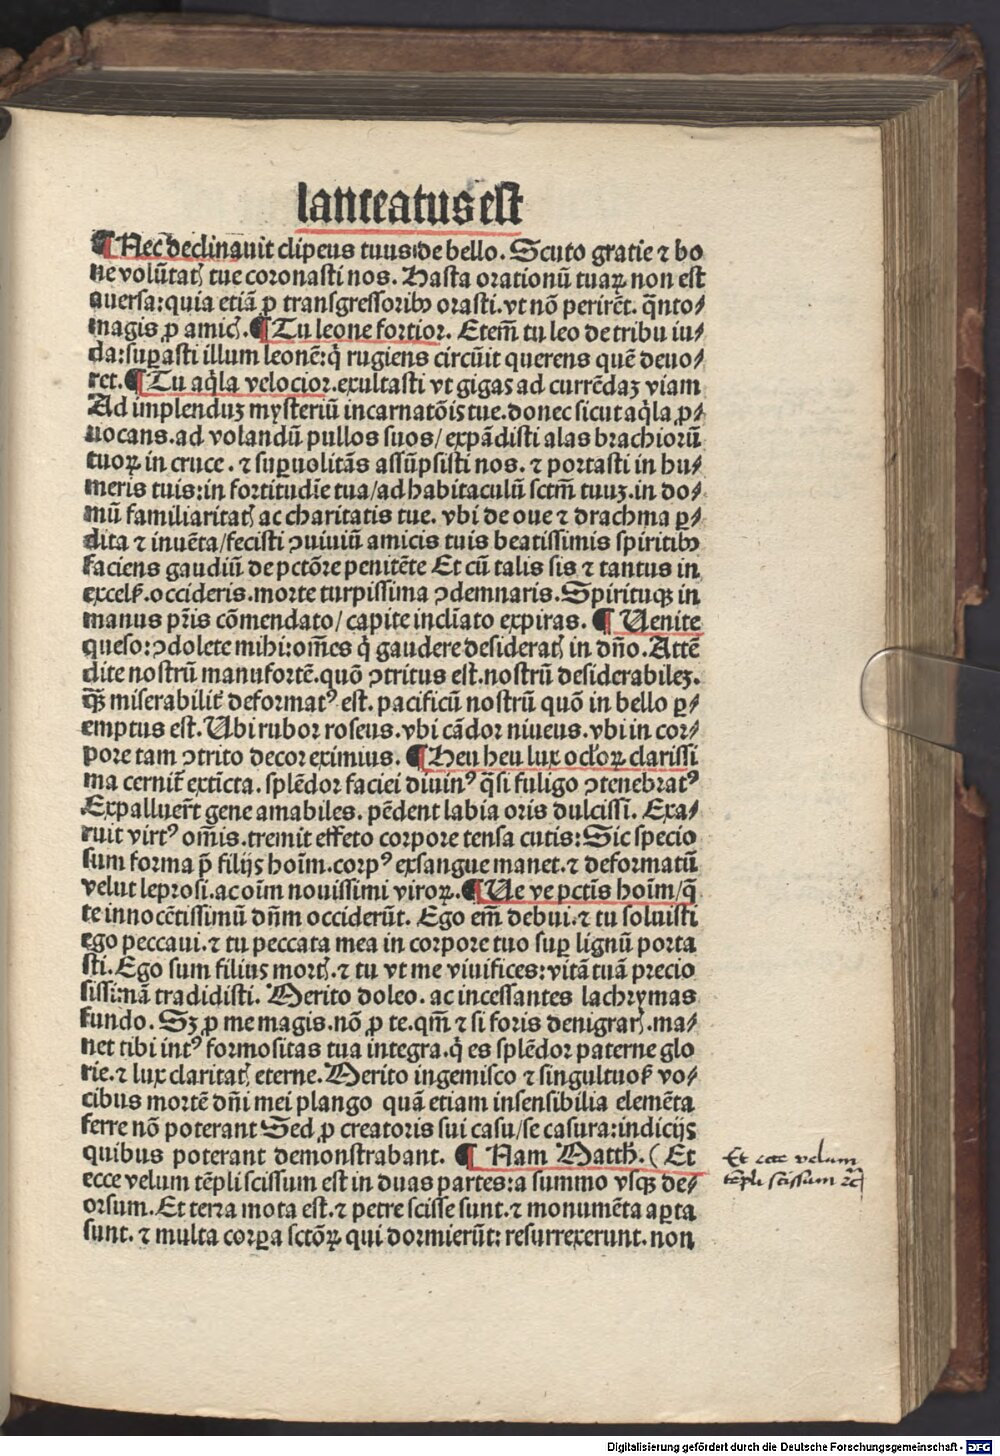 lanceatus est
¶ Nec declinauit clipeus tuus de bello. Scuto gratie ⁊ bo
ne volũtatꝭ tue coronasti nos. Hasta orationũ tuaꝝ non est
auersa: quia etiã ꝓ transgressoribꝰ orasti. vt nõ perirẽt. q̃nto⸗
magis ꝓ amicꝭ. ¶ Tu leone fortior. Etem̃ tu leo de tribu iu⸗
da: suꝑasti illum leonẽ: q̇ rugiens circũit querens quẽ deuo⸗
ret. ¶ Tu aq̇la velocior. exultasti vt gigas ad currẽdaꝫ viam
Ad implenduꝫ mysteriũ incarnatõis tue. donec sicut aq̇la ꝓ⸗
uocans. ad volandũ pullos suos/ expãdisti alas brachiorũ
tuoꝝ in cruce. ⁊ suꝑuolitãs assũpsisti nos. ⁊ portasti in hu⸗
meris tuis: in fortitudĩe tua/ ad habitaculũ sctm̃ tuuꝫ. in do⸗
mũ familiaritatꝭ ac charitatis tue. vbi de oue ⁊ drachma ꝑ⸗
dita ⁊ inuẽta/ fecisti ꝯuiuiũ amicis tuis beatissimis spiritibꝰ
faciens gaudiũ de pctõre penitẽte Et cũ talis sis ⁊ tantus in
excelꝭ. occideris. morte turpissima ꝯdemnaris. Spirituqꝫ in
manus pr̃is cõmendato/ capite inclĩato expiras. ¶ Uenite
queso: ꝯdolete mihi: om̃es q̇ gaudere desideratꝭ in dño. Attẽ
dite nostrũ manufortẽ. quõ ꝯtritus est. nostrũ desiderabileꝫ.
q̃ꝫ miserabilit̃ deformatꝰ est. pacificũ nostrũ quõ in bello ꝑ⸗
emptus est. Ubi rubor roseus. vbi cãdor niueus. vbi in cor⸗
pore tam ꝯtrito decor eximius. ¶ Heu heu lux ocl̃oꝝ clarissi
ma cernit̃ extĩcta. splẽdor faciei diuinꝰ q̃si fuligo ꝯtenebratꝰ
Expalluer̃t gene amabiles. pẽdent labia oris dulcissi. Exa⸗
ruit virtꝰ om̃is. tremit effeto corpore tensa cutis: Sic specio
sum forma p̃ filijs hoĩm. corpꝰ exsangue manet. ⁊ deformatũ
velut leprosi. ac oĩm nouissimi viroꝝ. ¶ Ue ve pctĩs hoĩm/ q̃
te innocẽtissimũ dñm occiderũt. Ego em̃ debui. ⁊ tu soluisti
ego peccaui. ⁊ tu peccata mea in corpore tuo suꝑ lignũ porta
sti. Ego sum filius mortꝭ. ⁊ tu vt me viuifices: vitã tuã precio
sissimã tradidisti. Merito doleo. ac incessantes lachrymas
fundo. Sꝫ ꝓ me magis. nõ ꝓ te. qm̃ ⁊ si foris denigrarꝭ. ma⸗
net tibi intꝰ formositas tua integra. q̇ es splẽdor paterne glo
rie. ⁊ lux claritatꝭ eterne. Merito ingemisco ⁊ singultuoꝭ vo⸗
cibus mortẽ dñi mei plango quã etiam insensibilia elemẽta
ferre nõ poterant Sed ꝓ creatoris sui casu/ se casura: indicijs
quibus poterant demonstrabant. ¶ Nam Matth̃. (Et
ecce velum tẽpli scissum est in duas partes: a summo vsqꝫ de⸗
orsum. Et terra mota est. ⁊ petre scisse sunt. ⁊ monumẽta aꝑta
sunt. ⁊ multa corꝑa sctõꝝ qui dormierũt: resurrexerunt. non
Et ecce velum
tẽpli scissum ⁊c̃
Digitalisierung gefördert durch die Deutsche Forschungsgemeinschaft - DFG